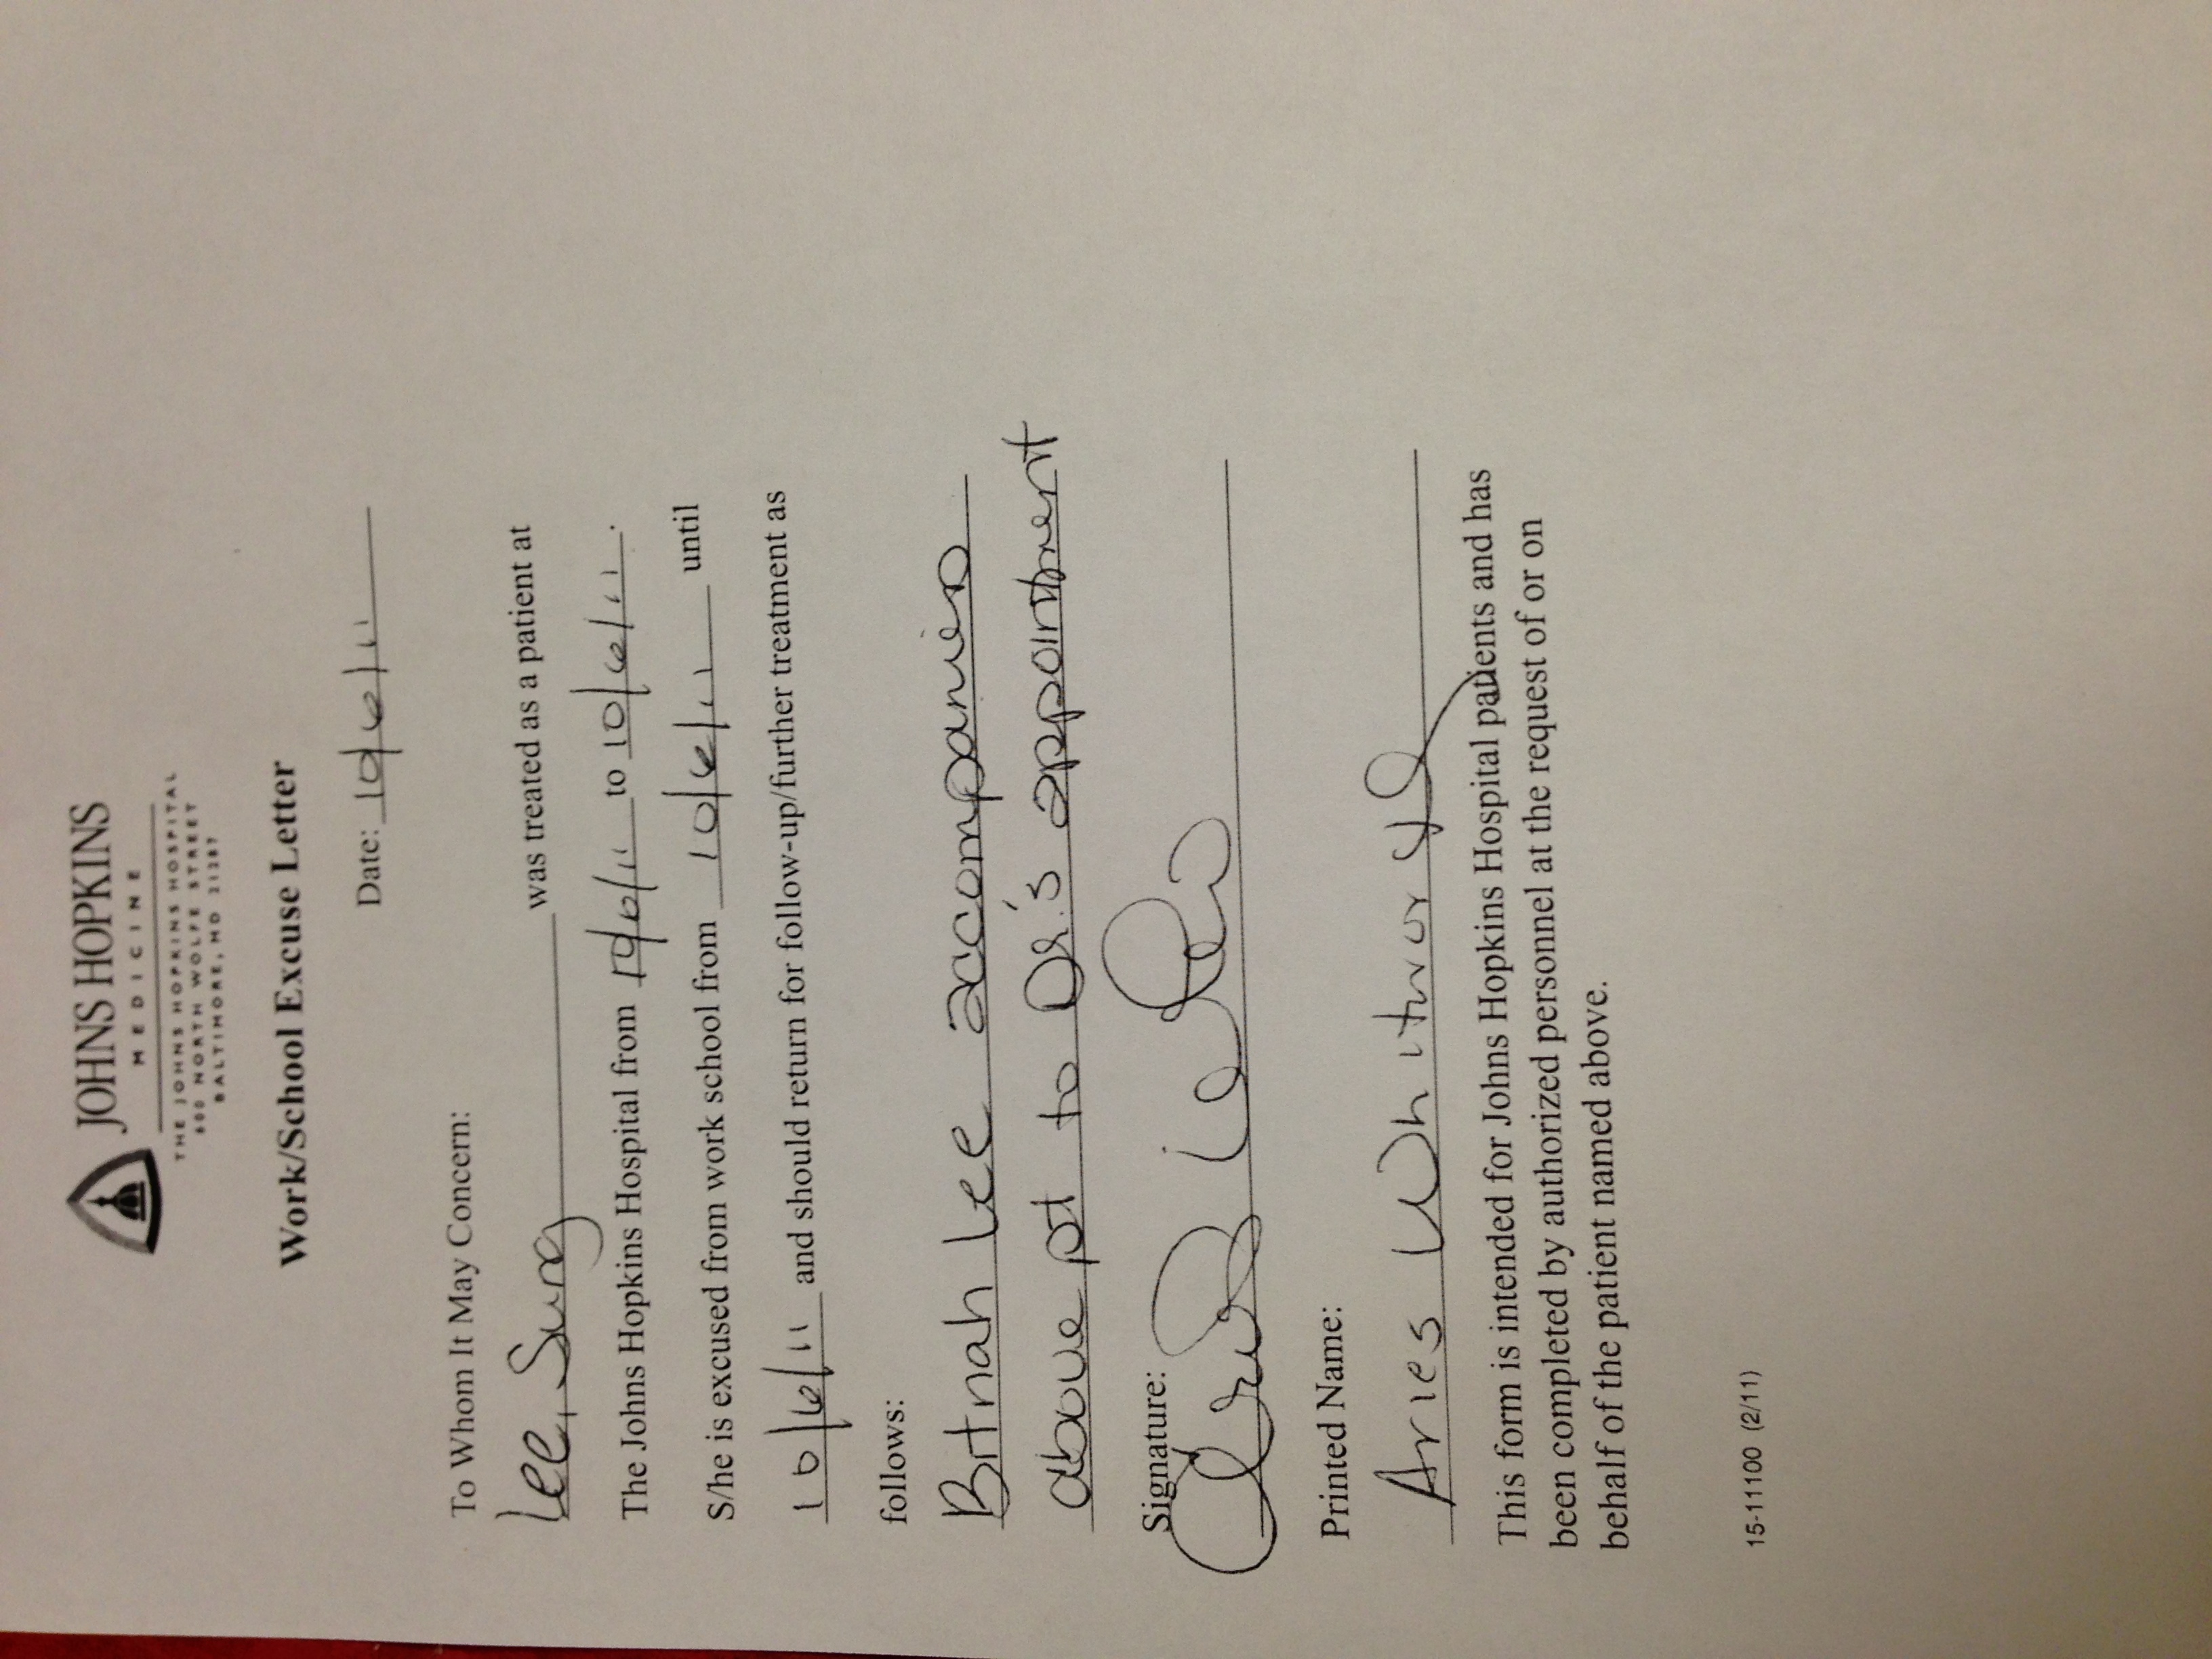 JOHNS HOPKINS
MEDICINE
THE JOHNS HOPKINS HOSPITAL
600 NORTH WOLFE STREET
BALTIMORE, MD 21287
Work/School Excuse Letter
Date: 10/6/11
To Whom It May Concern:
Lee, Sung was treated as a patient at
The Johns Hopkins Hospital from 10/6/11 to 10/6/11.
S/he is excused from work school from 10/6/11 until
10/6/11 and should return for follow-up/further treatment as
follows:
Bitnah Lee accompanies
above pt to Dr.'s appointment
Signature:
Printed Name:
Aries
This form is intended for Johns Hopkins Hospital patients and has
been completed by authorized personnel at the request of or on
behalf of the patient named above.
15-11100 (2/11)